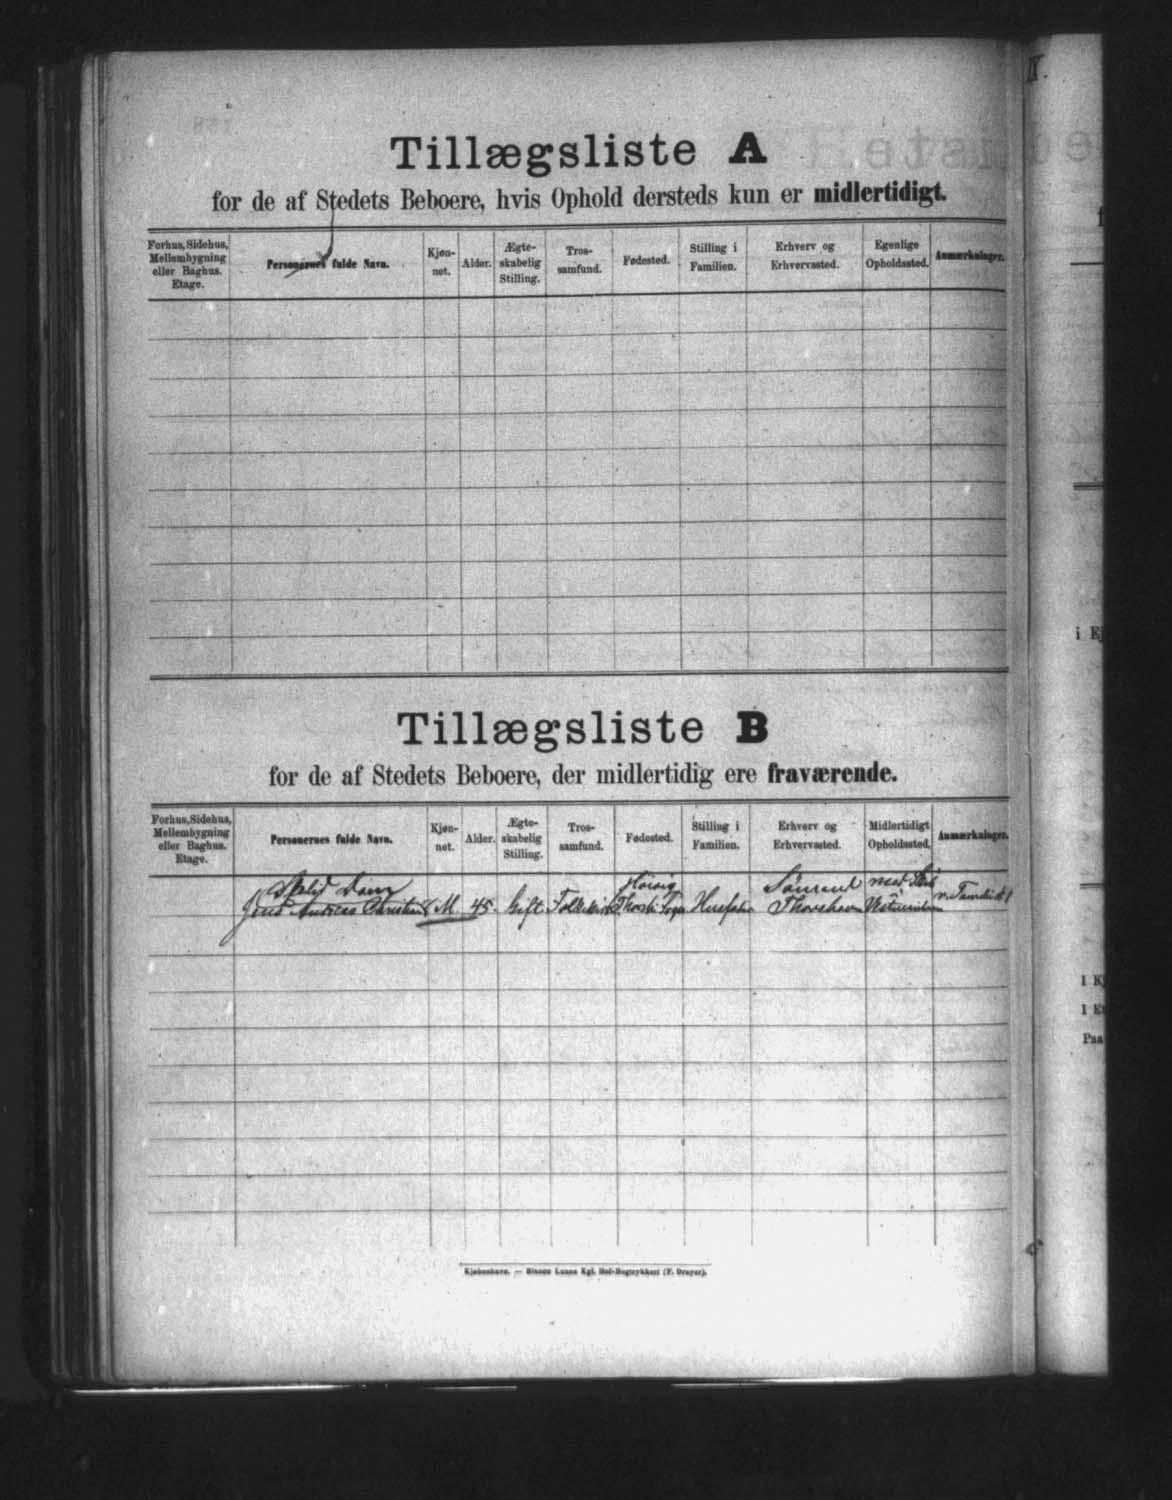 Tillægsliste A
for de af Stedets Beboere, hvis Ophold dersteds kun er midlertidigt.
Forhus, Sidehus, Mellembygning eller Baghus. Etage.
Personernes fulde Navn.
Kjøn-net.
Alder.
Ægte-skabelig Stilling.
Tros-samfund.
Fødested.
Stilling i Familien.
Erhverv og Erhvervssted.
Egenlige Opholdssted.
Anmærkninger.
Tillægsliste B
for de af Stedets Beboere, der midlertidig ere fraværende.
Forhus, Sidehus, Mellembygning eller Baghus. Etage.
Personernes fulde Navn.
Kjøn-net.
Alder.
Ægte-skabelig Stilling.
Tros-samfund.
Fødested.
Stilling i Familien.
Erhverv og Erhvervssted.
Midlertidigt Opholdssted.
Anmærkninger.
Jens Andreas Christian M 45. Gift. Husfader Thorshavn
Kjøbenhavn. — Bianco Lunos Kgl. Hof-Bogtrykkeri (F. Dreyer).
i Ej
I Kj
I Et
Paa